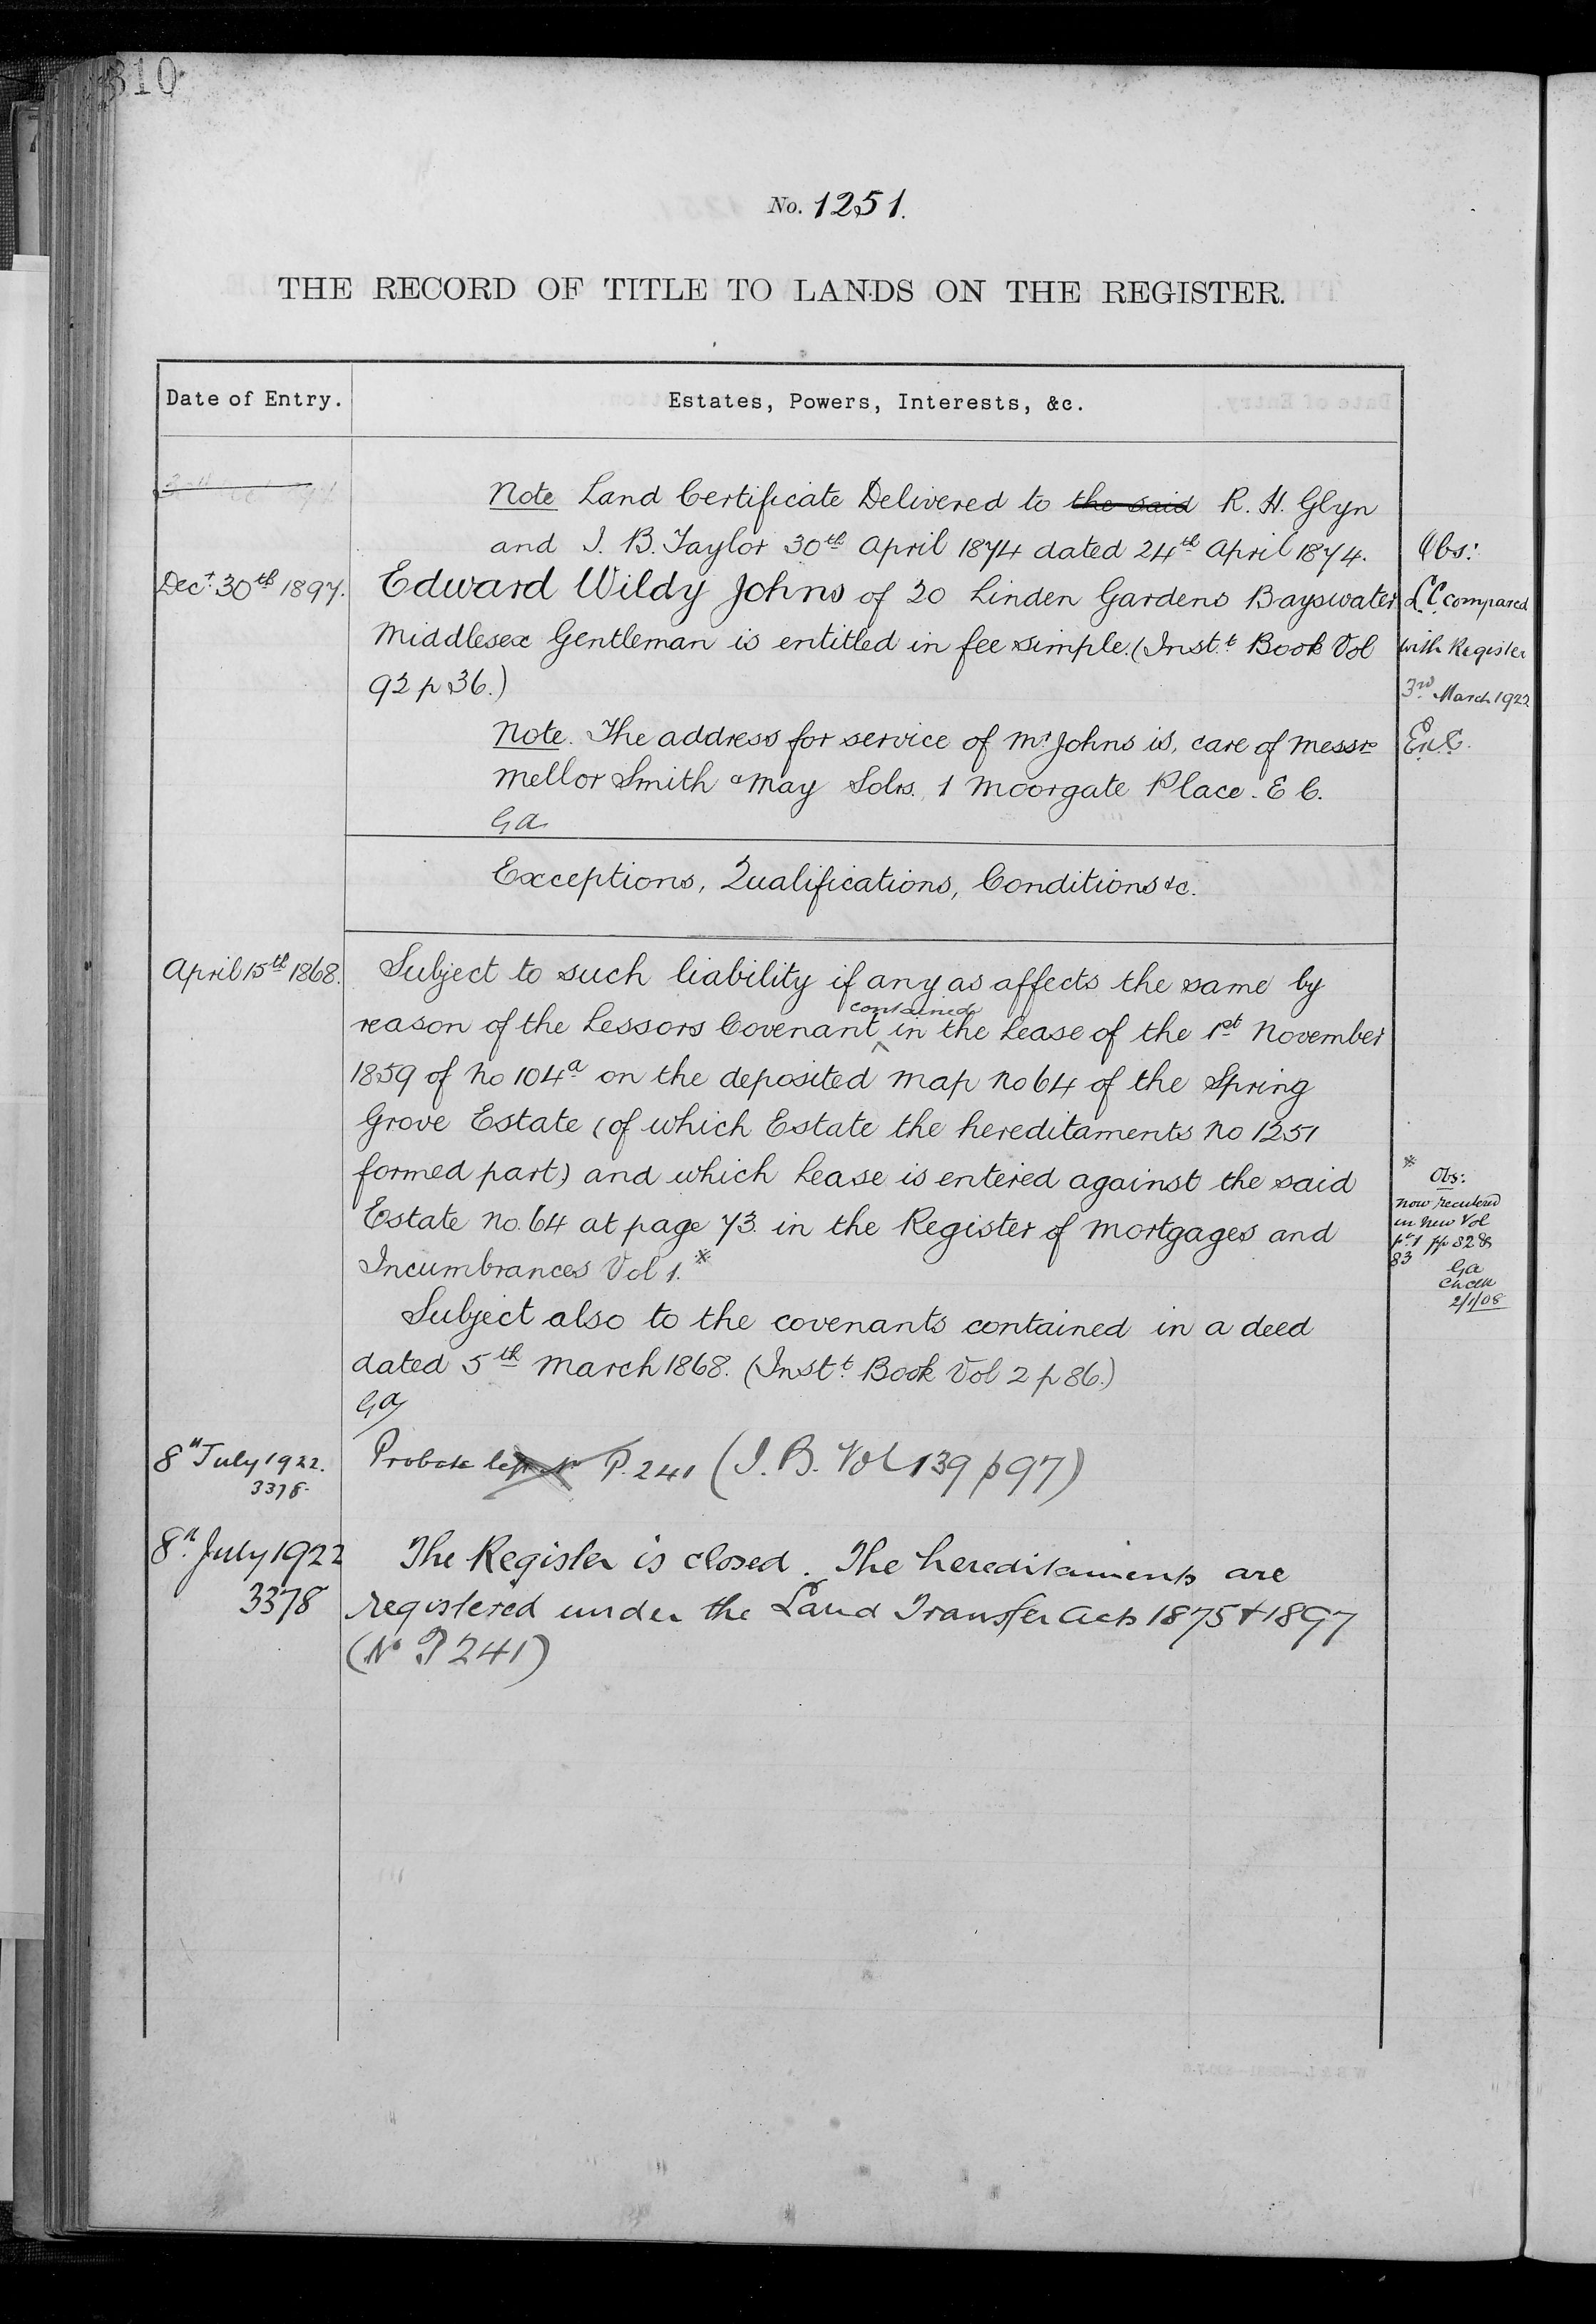 310
No. 1251.
THE RECORD OF TITLE TO LANDS ON THE REGISTER.
Date of Entry.
Estates, Powers, Interests, &c.
Note Land Certificate Delivered to the said R. H. Glyn
and I. B. Taylor 30th April 1874 dated 24th April 1874.
Obs:
Decr 30th 1897.
Edward Wildy Johns of 20 Linden Gardens Bayswater
L.C. compared
Middlesex Gentleman is entitled in fee simple. (Inst.t Book Vol
with Register
92 p 36.)
3rd March 1922
Note. The address for service of Mr Johns is, care of Messrs
E.R.C.
Mellor Smith & May Solrs. 1 Moorgate Place. E C.
GA
Exceptions, Qualifications, Conditions &c.
April 15th 1868.
Subject to such liability if any as affects the same by
reason of the Lessors Covenant contained in the Lease of the 1st November
1859 of No 104a on the deposited Map No 64 of the Spring
Grove Estate (of which Estate the hereditaments No 1251
formed part) and which Lease is entered against the said
Estate No. 64 at page 73. in the Register of Mortgages and
Incumbrances Vol 1.*
* Obs:
now reentered
in New Vol
pt 1 pp 82 &
83
GA
2/1/08
Subject also to the covenants contained in a deed
dated 5th March 1868. (Inst.t Book Vol 2 p 86.)
GA
8th July 1922.
3378
Probate left No P. 241 (I. B. Vol 139 p 97)
8th July 1922
3378
The Register is closed. The hereditaments are
registered under the Land Transfer Acts 1875 & 1897
(No P 241)